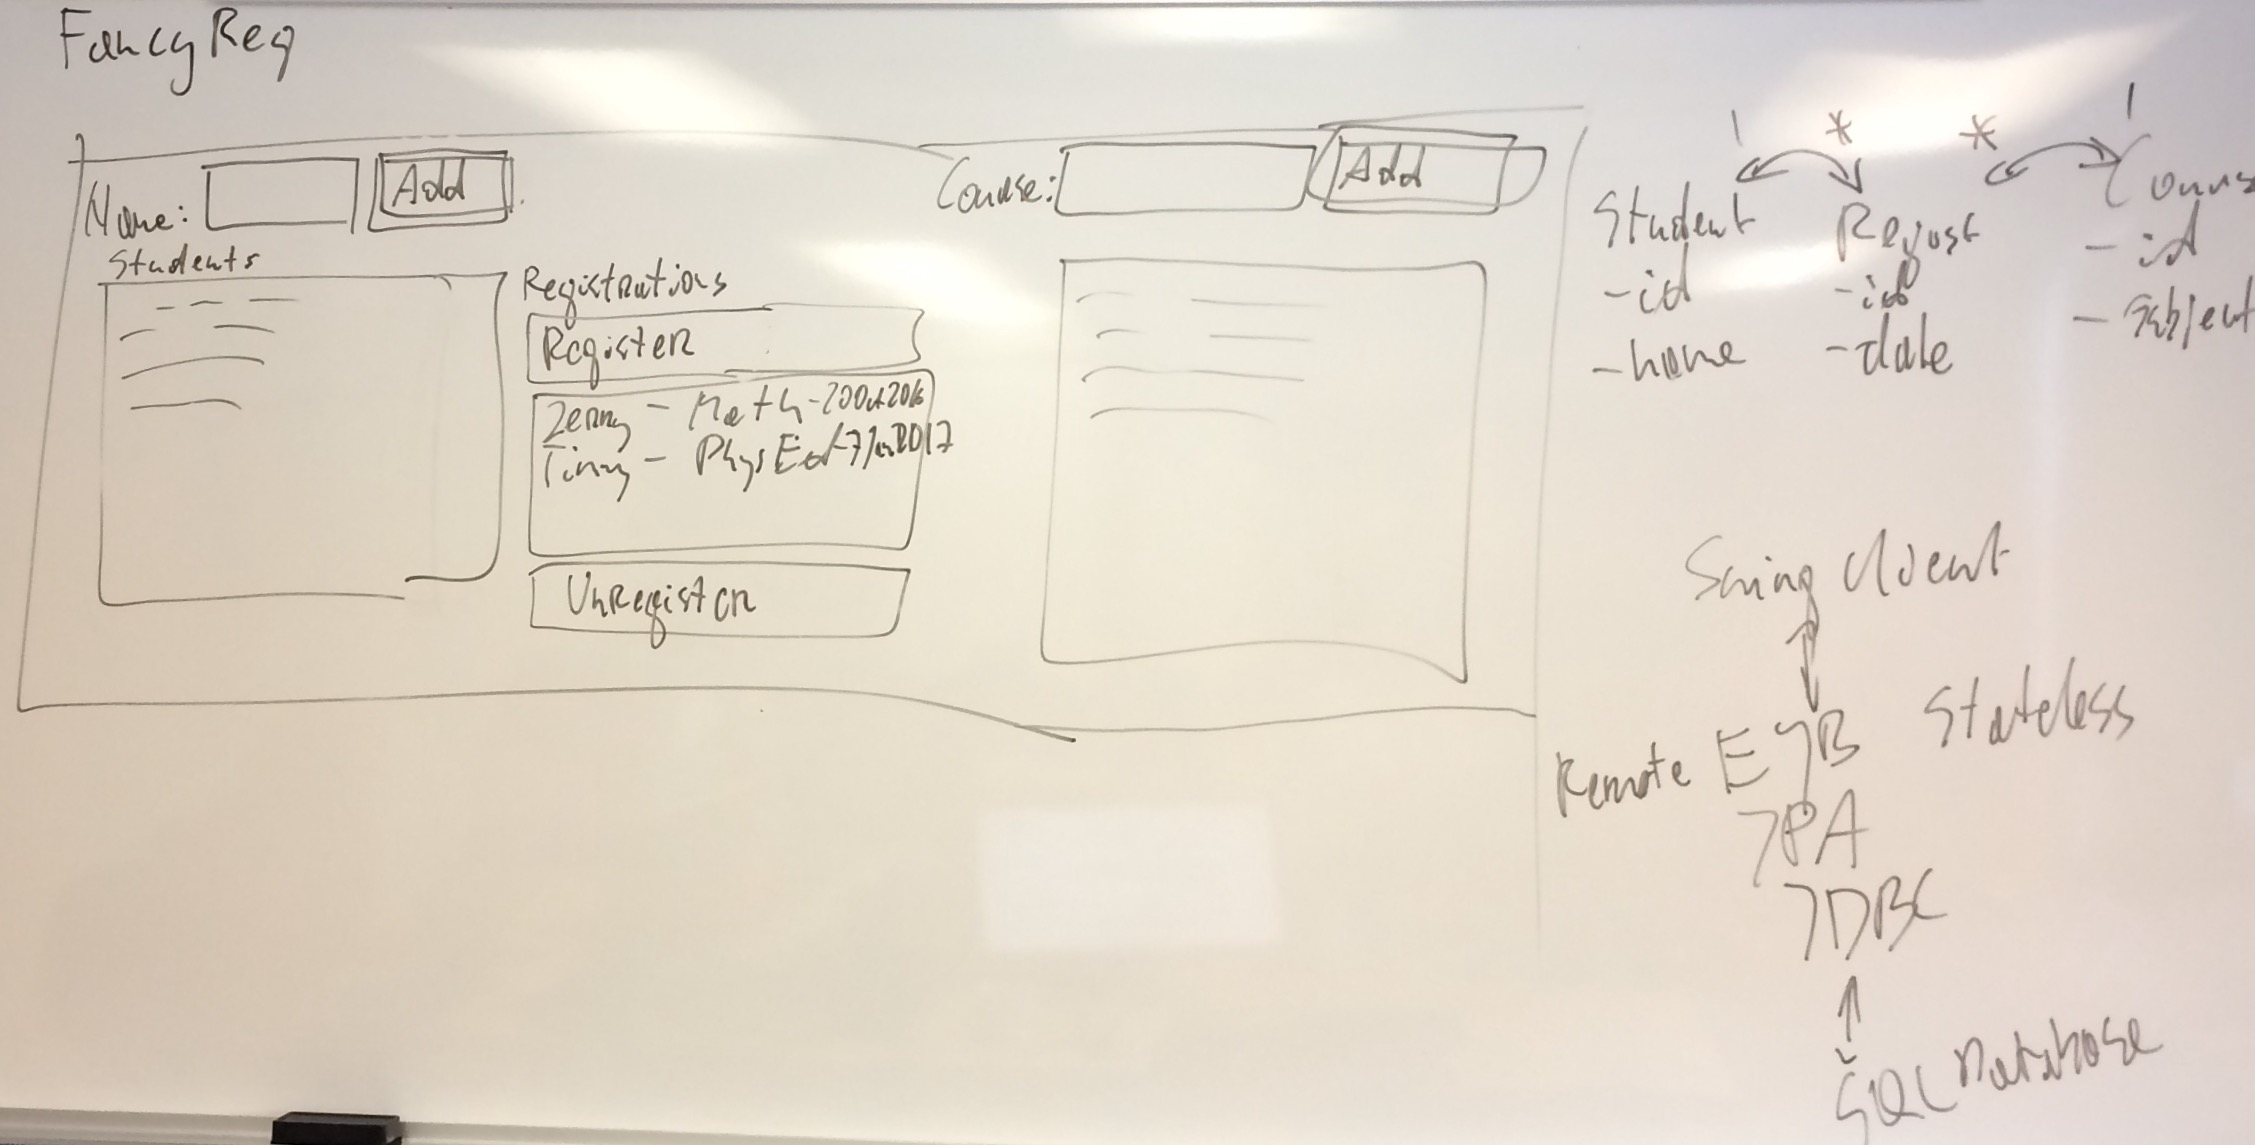 FancyReg
Name:
Add
Students
Registrations
Register
Zerry - Math - 20Oct2016
Timmy - PhysEd - 7Jan2017
UnRegister
Course:
Add
1 * * 1
Student
-id
-name
Regist
-id
-date
Course
-id
-subject
Swing client
Remote EJB Stateless
JPA
JDBC
SQL Database